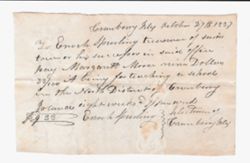 Cranberry Isles October 27th 1837
To Enoch Spurling treasurer of said
town or his successor in said office
pay Margarett Moore nine Dollars
being for teaching a school
in the North District of Cranberry
Islands eight weeks
$9.33 Enoch Spurling
Cranberry Isles